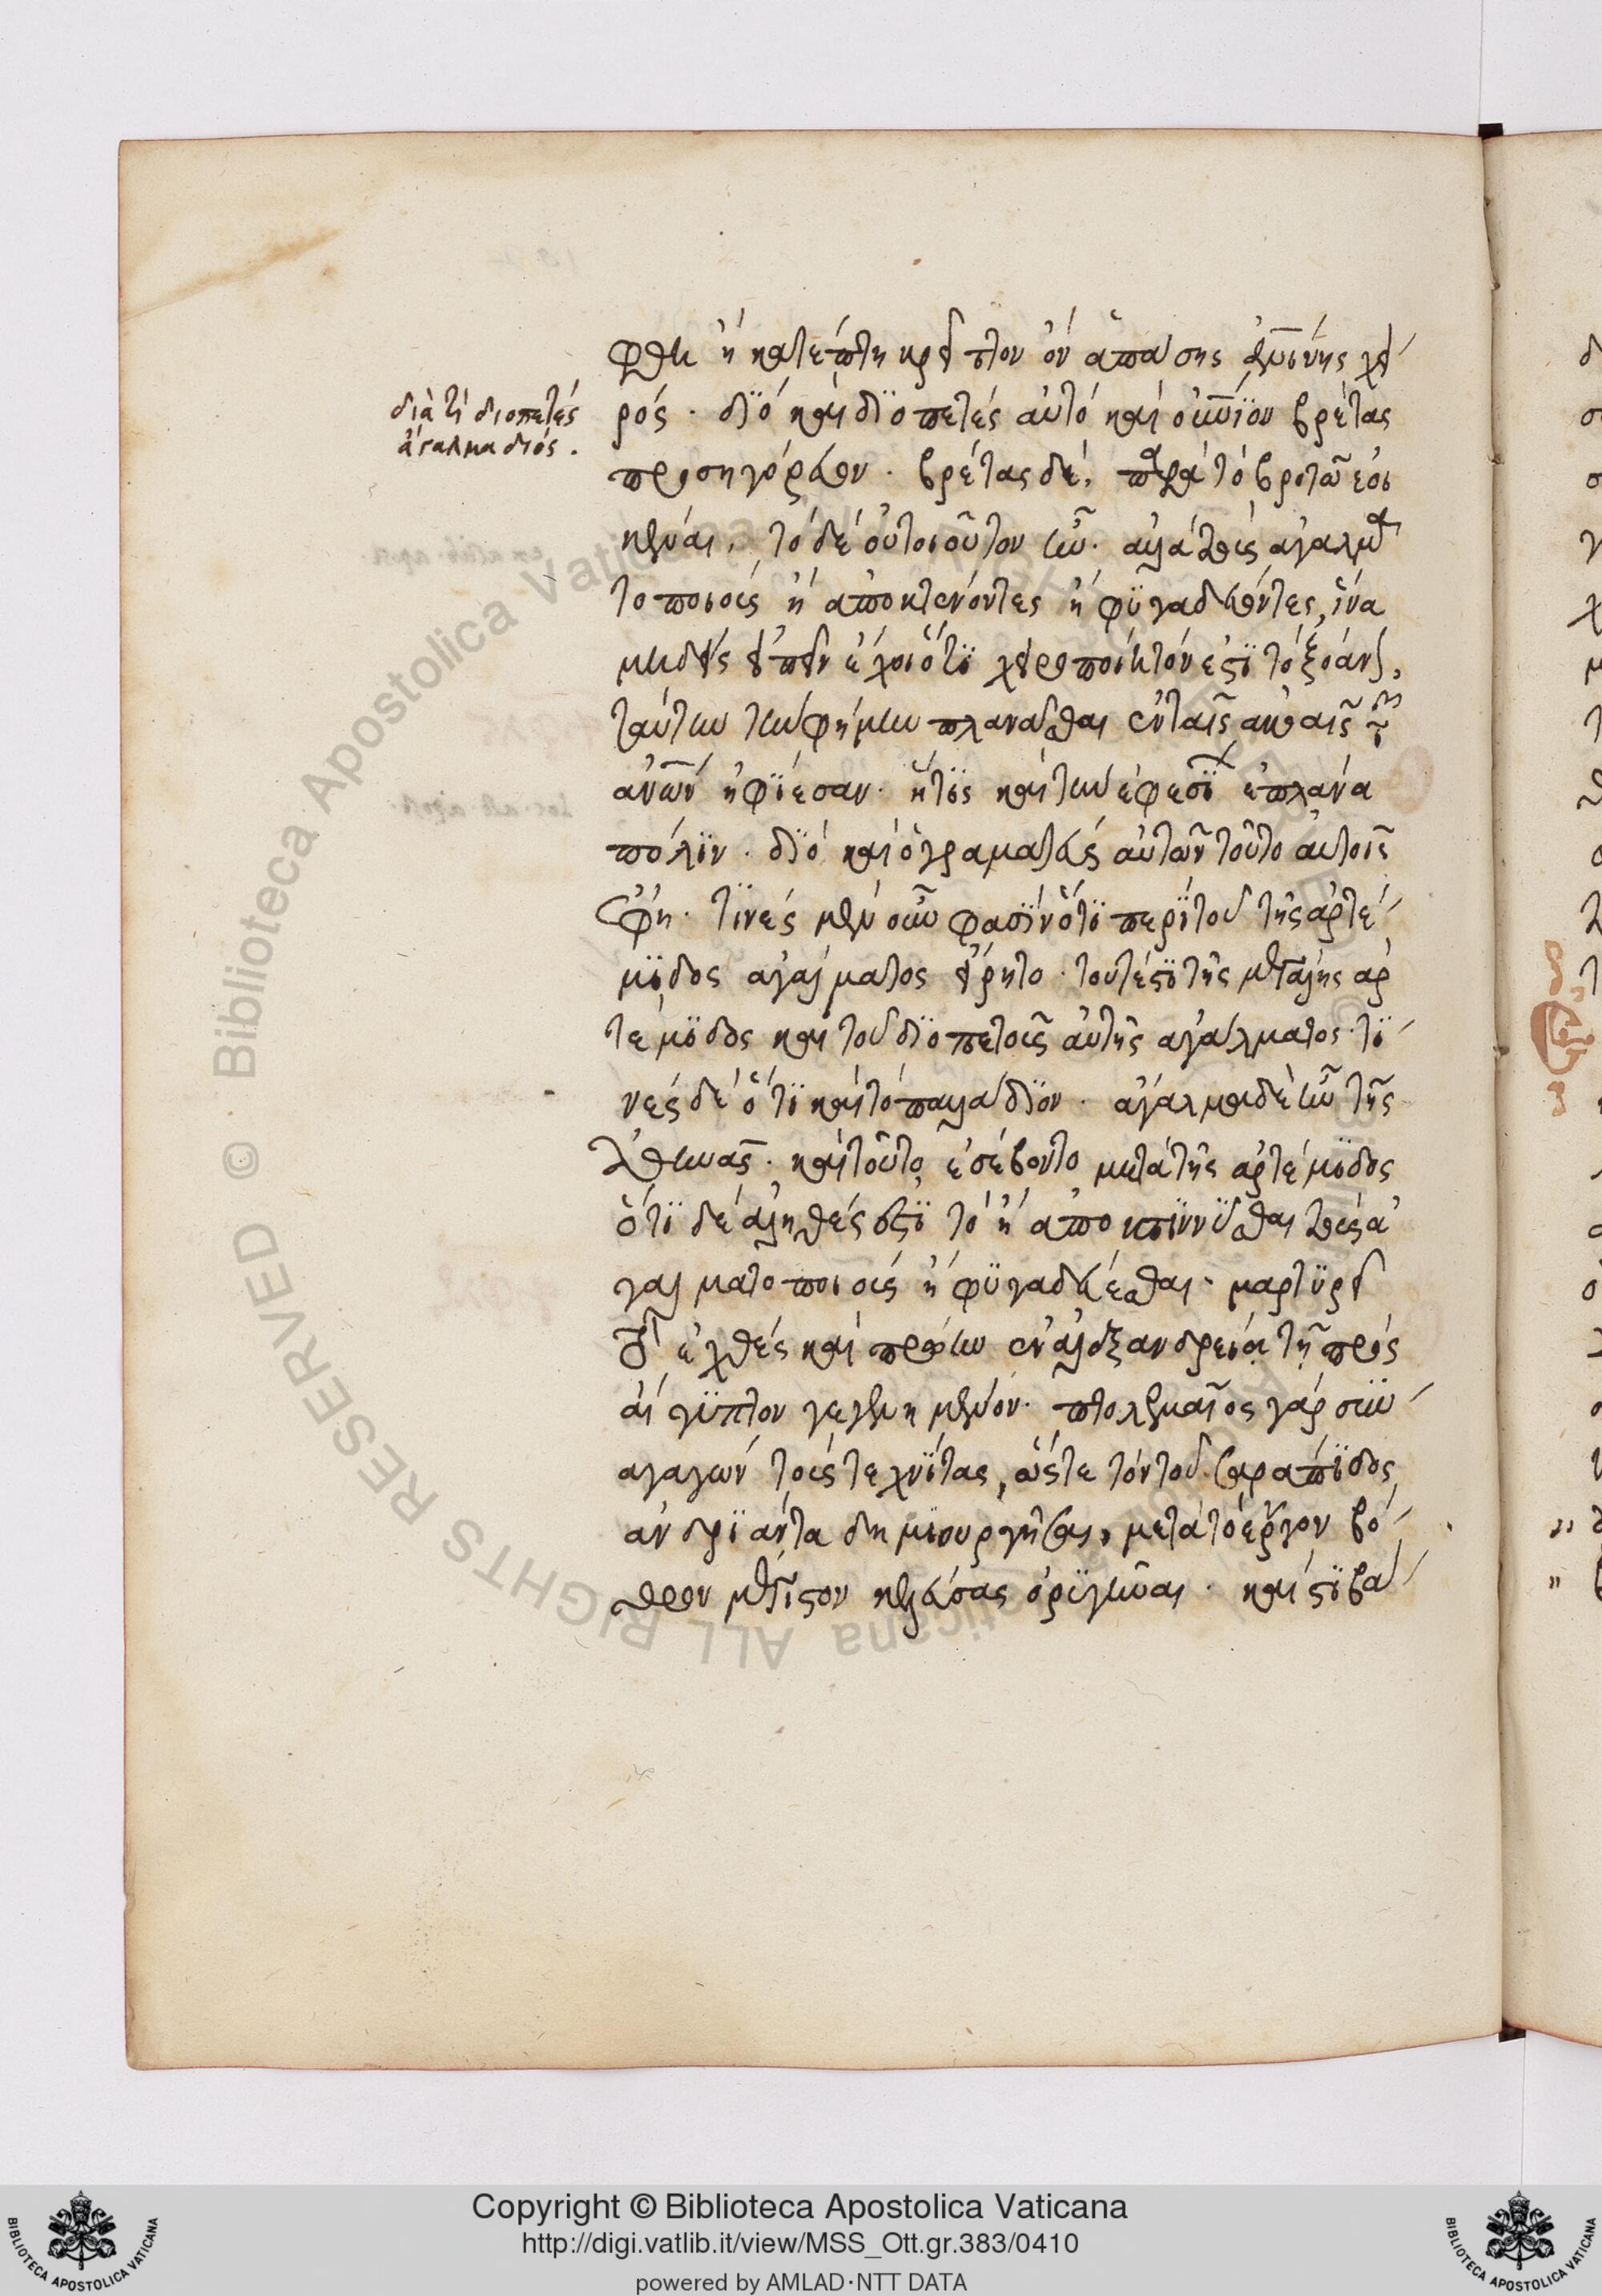 φθη ἢ κατέπτη κρεῖττον ὂν ἁπάσης ἀν̅ίνης χει
διὰ τί διοπετές
ἄγαλμα διός.
ρός. διὸ καὶ διοπετές αὐτὸ καὶ οὐν̅ϊον βρέτας
προσηγόρευον. βρέτας δὲ, παρὰ τὸ βροτῶ ἐοι
κέναι, τὸ δὲ οὐ τοιοῦτον ἦν. ἀλλὰ τοὺς ἀγαλμα
τοποιοὺς ἢ ἀποκτένοντες ἢ φυγαδεύοντες, ἵνα
μηδεὶς εἰπεῖν ἔχοι ὅτι χειροποίητόν ἐστι τὸ ξόανον,
ταύτην τὴν φήμην πλανᾶσθαι ἐν ταῖς ἀκοαῖς τῶν
ἀν̅ων ἠφίεσαν. ἥτις καὶ τὴν ἐφεσί ἐπλάνα
πόλιν. διὸ καὶ ὁ γραμματεὺς αὐτῶν τοῦτο αὐτοῖς
ἔφη. τινὲς μὲν οὖν φασὶν ὅτι περὶ τοῦ τῆς ἀρτέ
μιδος ἀγάλματος εἴρητο. τουτέστι τῆς μεγάλης ἀρ
τέμιδος καὶ τοῦ διοπετοῦς αὐτῆς ἀγάλματος. τι
νὲς δὲ ὅτι καὶ τὸ παλλάδιον. ἄγαλμα δὲ ἦν τῆς
Ἀθηνᾶς. καὶ τοῦτο ἐσέβοντο μετὰ τῆς ἀρτέμιδος
ὅτι δὲ ἀληθές ἐστι τὸ ἢ ἀποκτίννυσθαι τοὺς ἀ
γαλματοποιοὺς ἢ φυγαδεύεσθαι. μαρτυρεῖ
τὸ ἐχθὲς καὶ πρώην ἐν ἀλεξανδρείᾳ τῇ πρὸς
αἴγυπτον γεγενημένον. πτολεμαῖος γὰρ συν
αγαγὼν τοὺς τεχνίτας, ὥστε τὸν τοῦ σεράπιδος
ἀνδριάντα δημιουργῆσαι, μετὰ τὸ ἔργον βό
θρον μέγιστον κελεύσας ὀρυγῆναι. καὶ στιβά